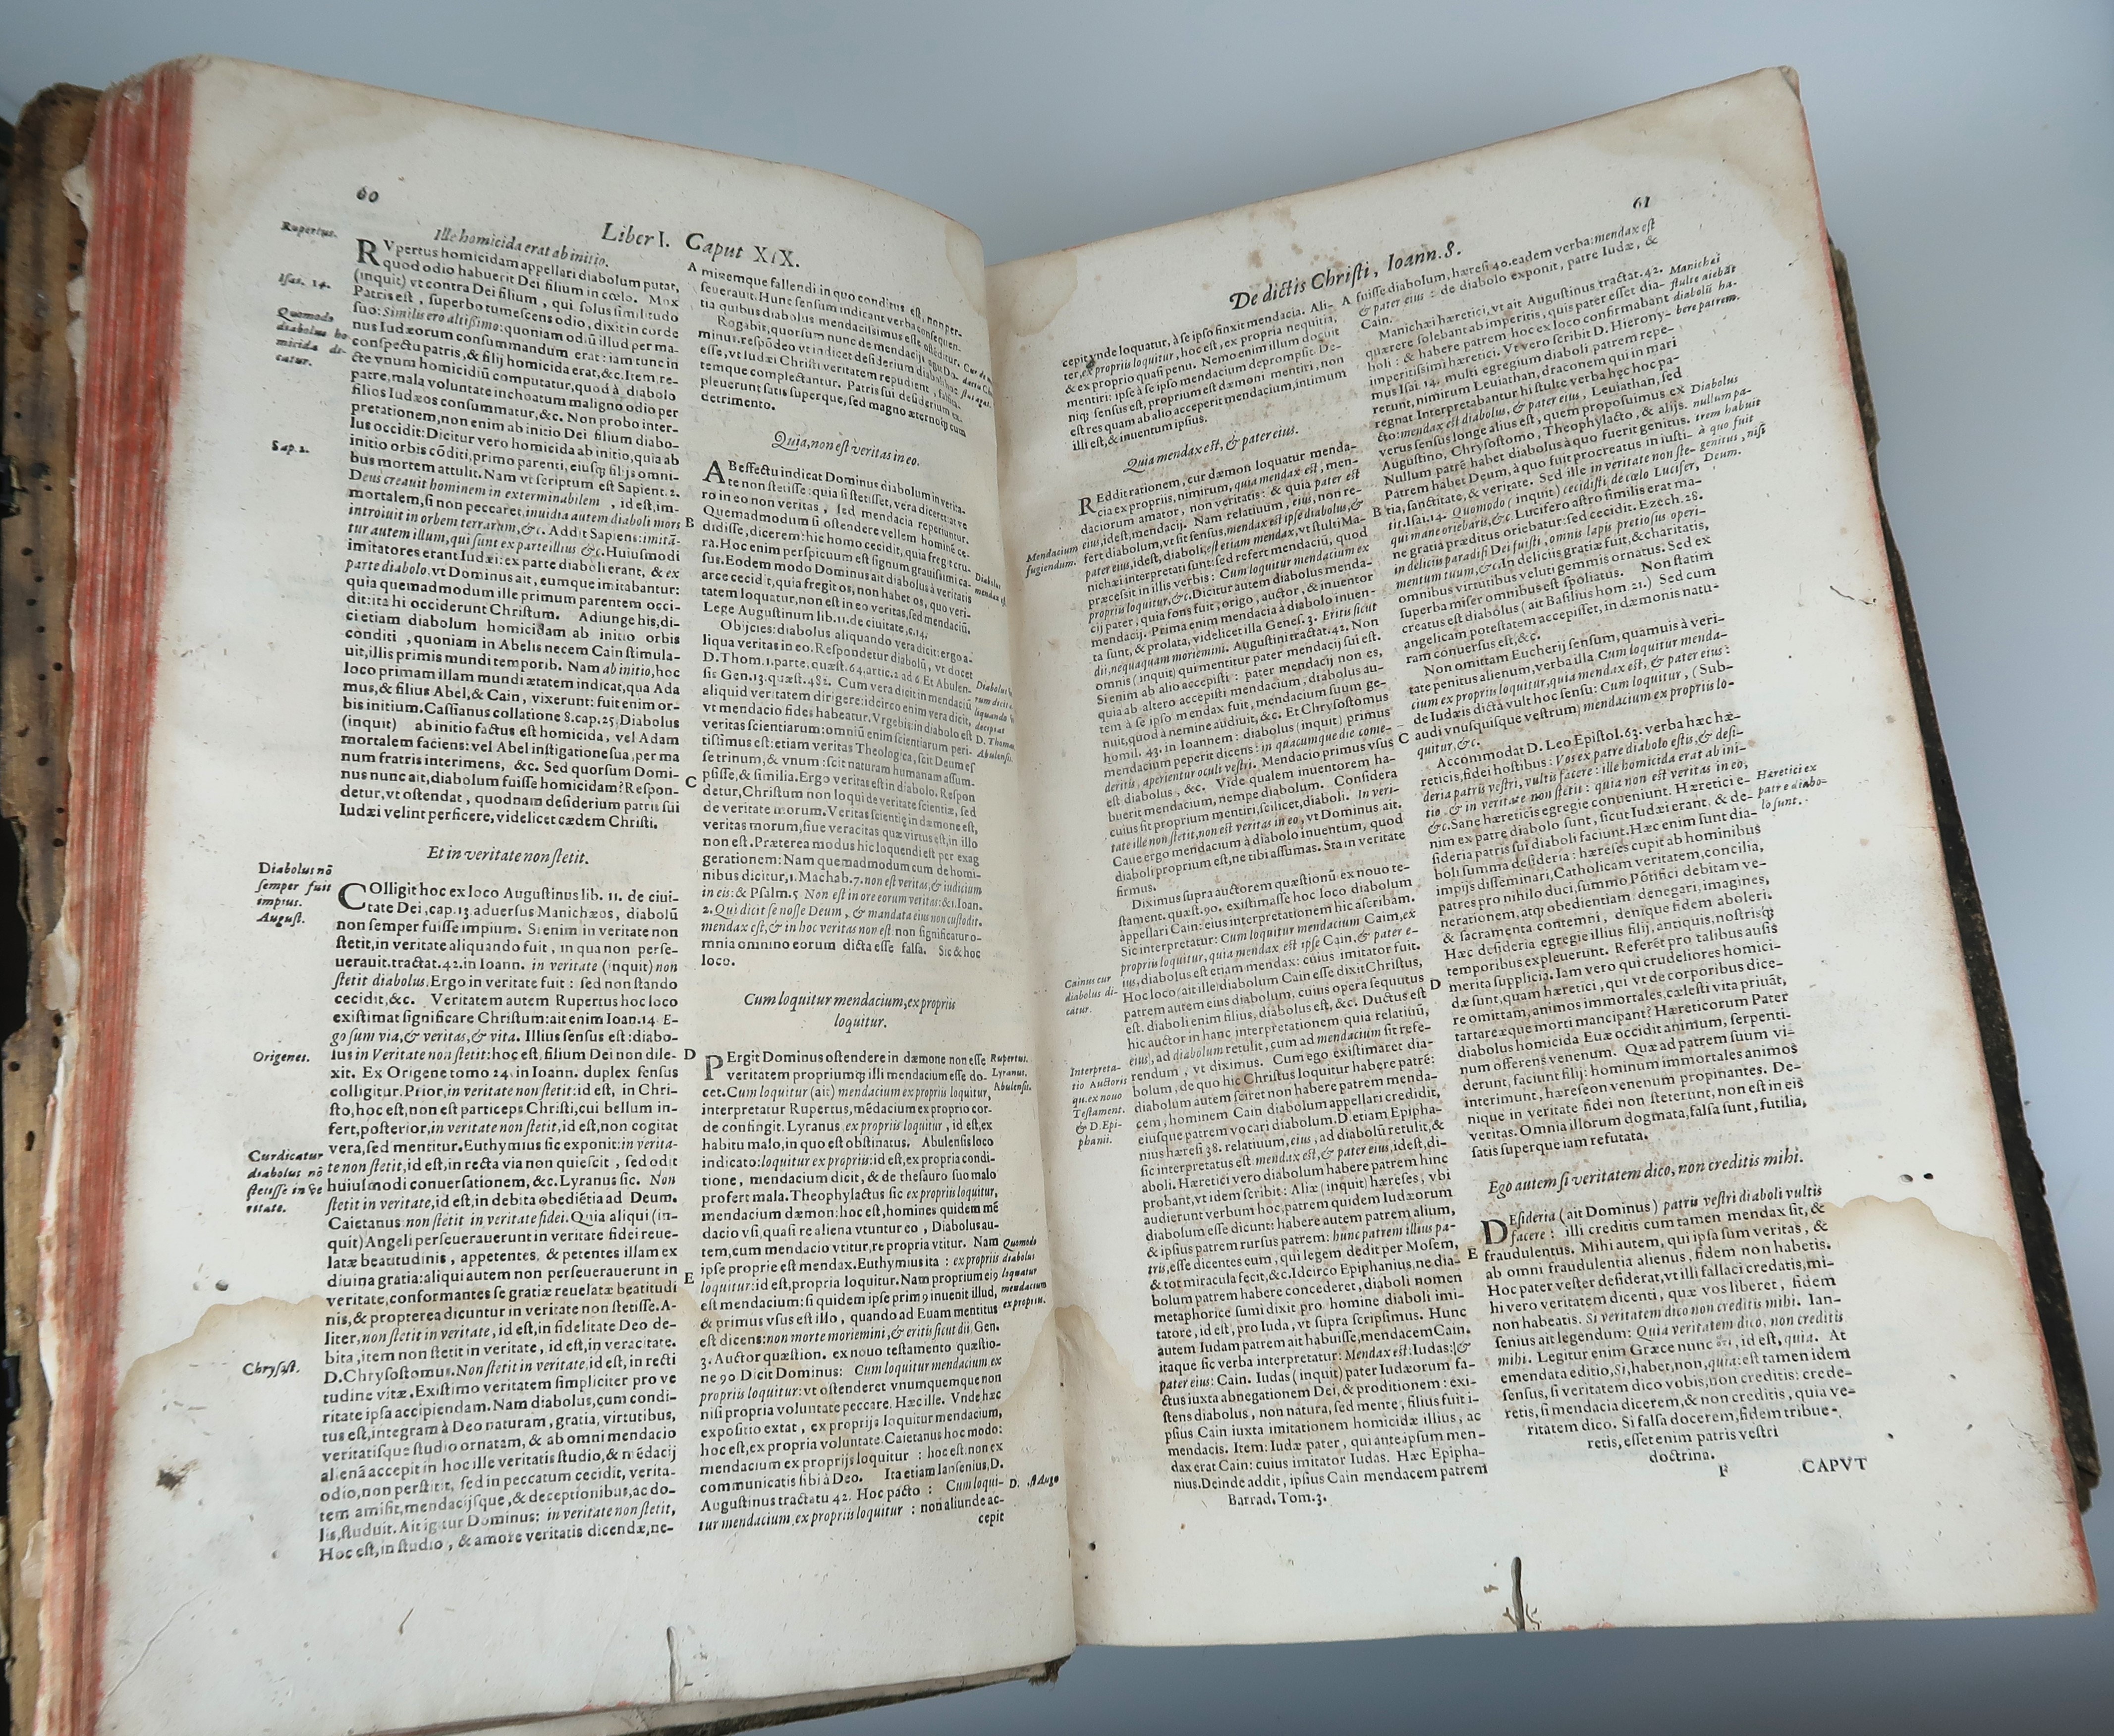 60
Liber I. Caput XIX.
Rupertus.
Isai. 14.
Quomodo
diabolus ho
micida di-
catur.
Sap. 2.
Diabolus nō
semper fuit
impius.
August.
Origenes.
Cur dicatur
diabolus nō
stetisse in ve
ritate.
Chrysost.
Ille homicida erat ab initio.
RVpertus homicidam appellari diabolum putat,
quod odio habuerit Dei filium in cœlo. Mox
(inquit) vt contra Dei filium, qui solus similitudo
Patris est, superbo tumescens odio, dixit in corde
suo: Similis ero altissimo: quoniam odiū illud per ma-
nus Iudæorum consummandum erat: iam tunc in
conspectu patris, & filij homicida erat, &c. Item, re-
cte vnum homicidiū computatur, quod à diabolo
patre, mala voluntate inchoatum maligno odio per
filios Iudæos consummatur, &c. Non probo inter-
pretationem, non enim ab initio Dei filium diabo-
lus occidit: Dicitur vero homicida ab initio, quia ab
initio orbis cōditi, primo parenti, eiusq; filijs omni-
bus mortem attulit. Nam vt scriptum est Sapient. 2.
Deus creauit hominem in exterminabilem, id est, im-
mortalem, si non peccaret, inuidia autem diaboli mors
introiuit in orbem terrarum, &c. Addit Sapiens: imitā-
tur autem illum, qui sunt ex parte illius &c. Huiusmodi
imitatores erant Iudæi: ex parte diaboli erant, & ex
parte diabolo, vt Dominus ait, eumque imitabantur:
quia quemadmodum ille primum parentem occi-
dit: ita hi occiderunt Christum. Adiunge his, di-
ci etiam diabolum homicidam ab initio orbis
conditi, quoniam in Abelis necem Cain stimula-
uit, illis primis mundi temporib. Nam ab initio, hoc
loco primam illam mundi ætatem indicat, qua Ada
mus, & filius Abel, & Cain, vixerunt: fuit enim or-
bis initium. Cassianus collatione 8. cap. 25. Diabolus
(inquit) ab initio factus est homicida, vel Adam
mortalem faciens: vel Abel instigatione sua, per ma
num fratris interimens, &c. Sed quorsum Domi-
nus nunc ait, diabolum fuisse homicidam? Respon-
detur, vt ostendat, quodnam desiderium patris sui
Iudæi velint perficere, videlicet cædem Christi.
Et in veritate non stetit.
COlligit hoc ex loco Augustinus lib. 11. de ciui-
tate Dei, cap. 13. aduersus Manichæos, diabolū
non semper fuisse impium. Si enim in veritate non
stetit, in veritate aliquando fuit, in qua non perse-
uerauit. tractat. 42. in Ioann. in veritate (inquit) non
stetit diabolus. Ergo in veritate fuit: sed non stando
cecidit, &c. Veritatem autem Rupertus hoc loco
existimat significare Christum: ait enim Ioan. 14. E-
go sum via, & veritas, & vita. Illius sensus est: diabo-
lus in Veritate non stetit: hoc est, filium Dei non dile-
xit. Ex Origene tomo 24. in Ioann. duplex sensus
colligitur. Prior, in veritate non stetit: id est, in Chri-
sto, hoc est, non est particeps Christi, cui bellum in-
fert, posterior, in veritate non stetit, id est, non cogitat
vera, sed mentitur. Euthymius sic exponit: in verita-
te non stetit, id est, in recta via non quiescit, sed odit
huiusmodi conuersationem, &c. Lyranus sic. Non
stetit in veritate, id est, in debita obediētia ad Deum.
Caietanus non stetit in veritate fidei. Quia aliqui (in-
quit) Angeli perseuerauerunt in veritate fidei reue-
latæ beatitudinis, appetentes, & petentes illam ex
diuina gratia: aliqui autem non perseuerauerunt in
veritate, conformantes se gratiæ reuelatæ beatitudi
nis, & propterea dicuntur in veritate non stetisse. A-
liter, non stetit in veritate, id est, in fidelitate Deo de-
bita, item non stetit in veritate, id est, in veracitate.
D. Chrysostomus. Non stetit in veritate, id est, in recti
tudine vitæ. Existimo veritatem simpliciter pro ve
ritate ipsa accipiendam. Nam diabolus, cum condi-
tus est, integram à Deo naturam, gratia, virtutibus,
veritatisque studio ornatam, & ab omni mendacio
alienā accepit in hoc ille veritatis studio, & mēdacij
odio, non perstitit, sed in peccatum cecidit, verita-
tem amisit, mendacijsque, & deceptionibus, ac do-
lis, studuit. Ait igitur Dominus: in veritate non stetit,
Hoc est, in studio, & amore veritatis dicendæ, ne-
A
B
C
D
E
misemque fallendi in quo conditus est, non per-
seuerauit. Hunc sensum indicant verba consequen-
tia quibus diabolus mendacissimus esse ostēditur.
Rogabit, quorsum nunc de mendacijs egit Do-
minus. respōdeo vt indicet desiderium diaboli hoc
esse, vt Iudæi Christi veritatem repudient,
temque complectantur. Patris sui desiderium ex-
pleuerunt satis superque, sed magno æternoq; cum
detrimento.
Quia, non est veritas in eo.
AB effectu indicat Dominus diabolum in verita-
te non stetisse: quia si stetisset, vera diceret: at ve
ro in eo non veritas, sed mendacia reperiuntur.
Quemadmodum si ostendere vellem hominē ce-
cidisse, dicerem: hic homo cecidit, quia fregit cru-
ra. Hoc enim perspictuum est signum grauissimi ca-
sus. Eodem modo Dominus ait diabolus à veritatis
arce cecidit, quia fregit os, non habet os, quo veri-
tatem loquatur, non est in eo veritas, sed mendaciū.
Lege Augustinum lib. 11. de ciuitate, c. 14.
Obijcies: diabolus aliquando vera dicit: ergo a-
liqua veritas in eo. Respondetur diabolū, vt docet
D. Thom. 1. parte, quæst. 64. artic. 2. ad 6. Et Abulen-
sis Gen. 13. quæst. 482. Cum vera dicit in mendaciū
aliquid veritatem dirigere: idcirco enim vera dicit,
vt mendacio fides habeatur. Vrgebis: in diabolo est
veritas scientiarum: omniū enim scientiarum peri-
tissimus est: etiam veritas Theologica, scit Deum es
se trinum, & vnum: scit naturam humanam assum-
psisse, & similia. Ergo veritas est in diabolo. Respon
detur, Christum non loqui de veritate scientiæ, sed
de veritate morum. Veritas scientię in dæmone est,
veritas morum, siue veracitas quæ virtus est, in illo
non est. Præterea modus hic loquendi est per exag
gerationem: Nam quemadmodum cum de homi-
nibus dicitur, 1. Machab. 7. non est veritas, & iudicium
in eis: & Psalm. 5. Non est in ore eorum veritas: & 1. Ioan.
2. Qui dicit se nosse Deum, & mandata eius non custodit,
mendax est, & in hoc veritas non est: non significatur o-
mnia omnino eorum dicta esse falsa. Sic & hoc
loco.
Cum loquitur mendacium, ex propriis
loquitur.
PErgit Dominus ostendere in dæmone non esse
veritatem propriumq; illi mendacium esse do-
cet. Cum loquitur (ait) mendacium ex propriis loquitur,
interpretatur Rupertus, mēdacium ex proprio cor-
de confingit. Lyranus ex propriis loquitur, id est, ex
habitu malo, in quo est obstinatus. Abulensis loco
indicato: loquitur ex propriis: id est, ex propria condi-
tione, mendacium dicit, & de thesauro suo malo
profert mala. Theophylactus sic ex propriis loquitur,
mendacium dæmon: hoc est, homines quidem mē
dacio vsi, quasi re aliena vtuntur eo, Diabolus au-
tem, cum mendacio vtitur, re propria vtitur. Nam
ipse proprie est mendax. Euthymius ita: ex propriis
loquitur: id est, propria loquitur. Nam proprium ei9
est mendacium: si quidem ipse prim9 inuenit illud,
& primus vsus est illo, quando ad Euam mentitus
est dicens: non morte moriemini, & eritis sicut dii, Gen.
3. Auctor quæstion. ex nouo testamento quæstio-
ne 90 Dicit Dominus: Cum loquitur mendacium ex
propriis loquitur: vt ostenderet vnumquemque non
nisi propria voluntate peccare. Hæc ille. Vnde hæc
expositio extat, ex proprijs loquitur mendacium,
hoc est, ex propria voluntate. Caietanus hoc modo:
mendacium ex proprijs loquitur: hoc est. non ex
communicatis sibi à Deo. Ita etiam Iansenius, D.
Augustinus tractatu 42. Hoc pacto: Cum loqui-
tur mendacium, ex propriis loquitur: non aliunde ac-
cepit
Diabolus
mendax est.
D. Thomas
Abulensis.
Rupertus.
Lyranus.
Abulensis.
Quomodo
diabolus
loquatur
mendacium
ex propriis.
D. Augo
61
De dictis Christi, Ioann. 8.
Mendacium
fugiendum.
Cainus cur
diabolus di-
catur.
Interpreta-
tio Auctoris
qu. ex nouo
Testament.
& D. Epi-
phanii.
cepit vnde loquatur, à se ipso finxit mendacia. Ali-
ter, ex propriis loquitur, hoc est, ex propria nequitia,
& ex proprio quasi penu. Nemo enim illum docuit
mentiri: ipse à se ipso mendacium deprompsit. De-
niq; sensus est, proprium est dæmoni mentiri, non
est res quam ab alio acceperit mendacium, intimum
illi est, & inuentum ipsius.
Quia mendax est, & pater eius.
REddit rationem, cur dæmon loquatur menda-
cia ex propriis, nimirum, quia mendax est, men-
daciorum amator, non veritatis: & quia pater est
eius, id est, mendacij. Nam relatiuum, eius, non re-
fert diabolum, vt sit sensus, mendax est ipse diabolus, &
pater eius, id est, diaboli, est etiam mendax, vt stulti Ma-
nichæi interpretati sunt: sed refert mendaciū, quod
præcessit in illis verbis: Cum loquitur mendacium ex
propriis loquitur, &c. Dicitur autem diabolus menda-
cij pater, quia fons fuit, origo, auctor, & inuentor
mendacij. Prima enim mendacia à diabolo inuen-
ta sunt, & prolata, videlicet illa Genes. 3. Eritis sicut
dii, nequaquam moriemini. Augustini tractat. 42. Non
omnis (inquit) qui mentitur pater mendacij sui est.
Si enim ab alio accepisti: pater mendacij non es,
quia ab altero accepisti mendacium, diabolus au-
tem à se ipso mendax fuit, mendacium suum ge-
nuit, quod à nemine audiuit, &c. Et Chrysostomus
homil. 43. in Ioannem: diabolus (inquit) primus
mendacium peperit dicens: in quacumque die come-
deritis, aperientur oculi vestri. Mendacio primus vsus
est diabolus, &c. Vide qualem inuentorem ha-
buerit mendacium, nempe diabolum. Considera
cuius sit proprium mentiri, scilicet, diaboli. In veri-
tate ille non stetit, non est veritas in eo, vt Dominus ait.
Caue ergo mendacium à diabolo inuentum, quod
diaboli proprium est, ne tibi assumas. Sta in veritate
firmus.
Diximus supra auctorem quæstionū ex nouo te-
stament. quæst. 90. existimasse hoc loco diabolum
appellari Cain: eius interpretationem hic ascribam.
Sic interpretatur: Cum loquitur mendacium Caim, ex
propriis loquitur, quia mendax est ipse Cain, & pater e-
ius, diabolus est etiam mendax: cuius imitator fuit.
Hoc loco (ait ille) diabolum Cain esse dixit Christus,
patrem autem eius diabolum, cuius opera sequutus
est. diaboli enim filius, diabolus est, &c. Ductus est
hic auctor in hanc interpretationem quia relatiuū,
eius, ad diabolum retulit, cum ad mendacium sit refe-
rendum, vt diximus. Cum ego existimaret dia-
bolum, de quo hic Christus loquitur habere patrē:
diabolum autem sciret non habere patrem menda-
cem, hominem Cain diabolum appellari credidit,
eiusque patrem vocari diabolum. D. etiam Epipha-
nius hæresi 38. relatiuum, eius, ad diabolū retulit, &
sic interpretatus est mendax est, & pater eius, id est, di-
aboli. Hæretici vero diabolum habere patrem hinc
probant, vt idem scribit: Aliæ (inquit) hæreses, vbi
audierunt verbum hoc, patrem quidem Iudæorum
diabolum esse dicunt: habere autem patrem alium,
& ipsius patrem rursus patrem: hunc patrem illius pa-
tris, esse dicentes eum, qui legem dedit per Mosem,
& tot miracula fecit, &c. Idcirco Epiphanius, ne dia-
bolum patrem habere concederet, diaboli nomen
metaphorice sumi dixit pro homine diaboli imi-
tatore, id est, pro Iuda, vt supra scripsimus. Hunc
autem Iudam patrem ait habuisse, mendacem Cain.
itaque sic verba interpretatur: Mendax est: Iudas: &
pater eius: Cain. Iudas (inquit) pater Iudæorum fa-
ctus iuxta abnegationem Dei, & proditionem: exi-
stens diabolus, non natura, sed mente, filius fuit i-
psius Cain iuxta imitationem homicidæ illius, ac
mendacis. Item: Iudæ pater, qui ante ipsum men-
dax erat Cain: cuius imitator Iudas. Hæc Epipha-
nius. Deinde addit, ipsius Cain mendacem patrem
Barrad. Tom. 3.
A
B
C
D
E
suisse diabolum, hæresi 40. eadem verba: mendax est
& pater eius: de diabolo exponit, patre Iudæ, &
Cain.
Manichæi hæretici, vt ait Augustinus tractat. 42.
quærere solebant ab imperitis, quis pater esset dia-
boli: & habere patrem hoc ex loco confirmabant
imperitissimi hæretici. Vt vero scribit D. Hierony-
mus Isai. 14. multi egregium diaboli patrem repe-
rerunt, nimirum Leuiathan, draconem qui in mari
regnat Interpretabantur hi stulte verba hęc hoc pa-
cto: mendax est diabolus, & pater eius, Leuiathan, sed
verus sensus longe alius est, quem proposuimus ex
Augustino, Chrysostomo, Theophylacto, & alijs.
Nullum patrē habet diabolus à quo fuerit genitus.
Patrem habet Deum, à quo fuit procreatus in iusti-
tia, sanctitate, & veritate. Sed ille in veritate non ste-
tit. Isai. 14. Quomodo (inquit) cecidisti de cœlo Lucifer,
qui mane oriebaris, &c. Lucifero astro similis erat ma-
ne gratia præditus oriebatur: sed cecidit. Ezech. 28.
in deliciis paradisi Dei fuisti, omnis lapis pretiosus operi-
mentum tuum, &c. In deliciis gratiæ fuit, & charitatis,
omnibus virtutibus veluti gemmis ornatus. Sed ex
superba miser omnibus est spoliatus. Non statim
creatus est diabolus (ait Basilius hom. 21.) Sed cum
angelicam potestatem accepisset, in dæmonis natu-
ram conuersus est, &c.
Non omittam Eucherij sensum, quamuis à veri-
tate penitus alienum, verba illa Cum loquitur menda-
cium ex propriis loquitur, quia mendax est, & pater eius:
de Iudæis dicta vult hoc sensu: Cum loquitur, (Sub-
audi vnusquisque vestrum) mendacium ex propriis lo-
quitur, &c.
Accommodat D. Leo Epistol. 63. verba hæc hæ-
reticis, fidei hostibus: Vos ex patre diabolo estis, & desi-
deria patris vestri, vultis facere: ille homicida erat ab ini-
tio, & in veritate non stetit: quia non est veritas in eo,
&c. Sane hæreticis egregie conueniunt. Hæretici e-
nim ex patre diabolo sunt, sicut Iudæi erant, & de-
sideria patris sui diaboli faciunt. Hæc enim sunt dia-
boli summa desideria: hæreses cupit ab hominibus
impijs disseminari, Catholicam veritatem, concilia,
patres pro nihilo duci, summo Pōtifici debitam ve-
nerationem, atq; obedientiam: denegari, imagines,
& sacramenta contemni, denique fidem aboleri.
Hæc desideria egregie illius filij, antiquis, nostrisq;
temporibus expleuerunt. Referēt pro talibus ausis
merita supplicia. Iam vero qui crudeliores homici-
dæ sunt, quam hæretici, qui vt de corporibus dice-
re omittam, animos immortales, cælesti vita priuāt,
tartareæque morti mancipant? Hæreticorum Pater
diabolus homicida Euæ occidit animum, serpenti-
num offerens venenum. Quæ ad patrem suum vi-
derunt, faciunt filij: hominum immortales animos
interimunt, hæreseon venenum propinantes. De-
nique in veritate fidei non steterunt, non est in eis
veritas. Omnia illorum dogmata, falsa sunt, futilia,
satis superque iam refutata.
Ego autem si veritatem dico, non creditis mihi.
DEsideria (ait Dominus) patris vestri diaboli vultis
facere: illi creditis cum tamen mendax sit, &
fraudulentus. Mihi autem, qui ipsa sum veritas, &
ab omni fraudulentia alienus, fidem non habetis.
Hoc pater vester desiderat, vt illi fallaci credatis, mi-
hi vero veritatem dicenti, quæ vos liberet, fidem
non habeatis. Si veritatem dico non creditis mihi. Ian-
senius ait legendum: Quia veritatem dico, non creditis
mihi. Legitur enim Græce nunc ὅτι, id est, quia. At
emendata editio, Si, habet, non, quia: est tamen idem
sensus, si veritatem dico vobis, non creditis: crede-
retis, si mendacia dicerem, & non creditis, quia ve-
ritatem dico. Si falsa docerem, fidem tribue-
retis, esset enim patris vestri
doctrina.
F
CAPVT
Manichæi
stulte aiebāt
diabolū ha-
bere patrem.
Diabolus
nullum pa-
trem habuit
à quo fuit
genitus, nisi
Deum.
Hæretici ex
patre diabo-
lo sunt.